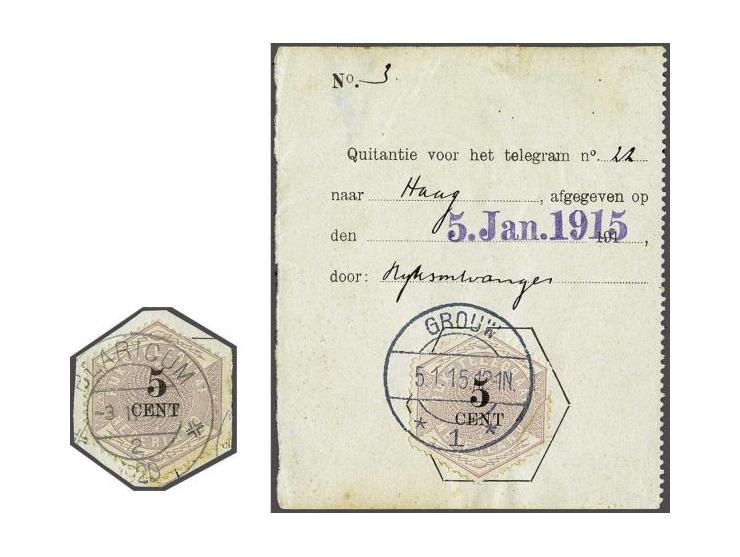 No. 3
Quitantie voor het telegram no. 22
naar Haag, afgegeven op
den 5.Jan.1915 191 ,
door: Ryksontvanger
GROUW
5.1.15.12-1N.
5
CENT
* 1 *
LARICUM
5
CENT
-3
2